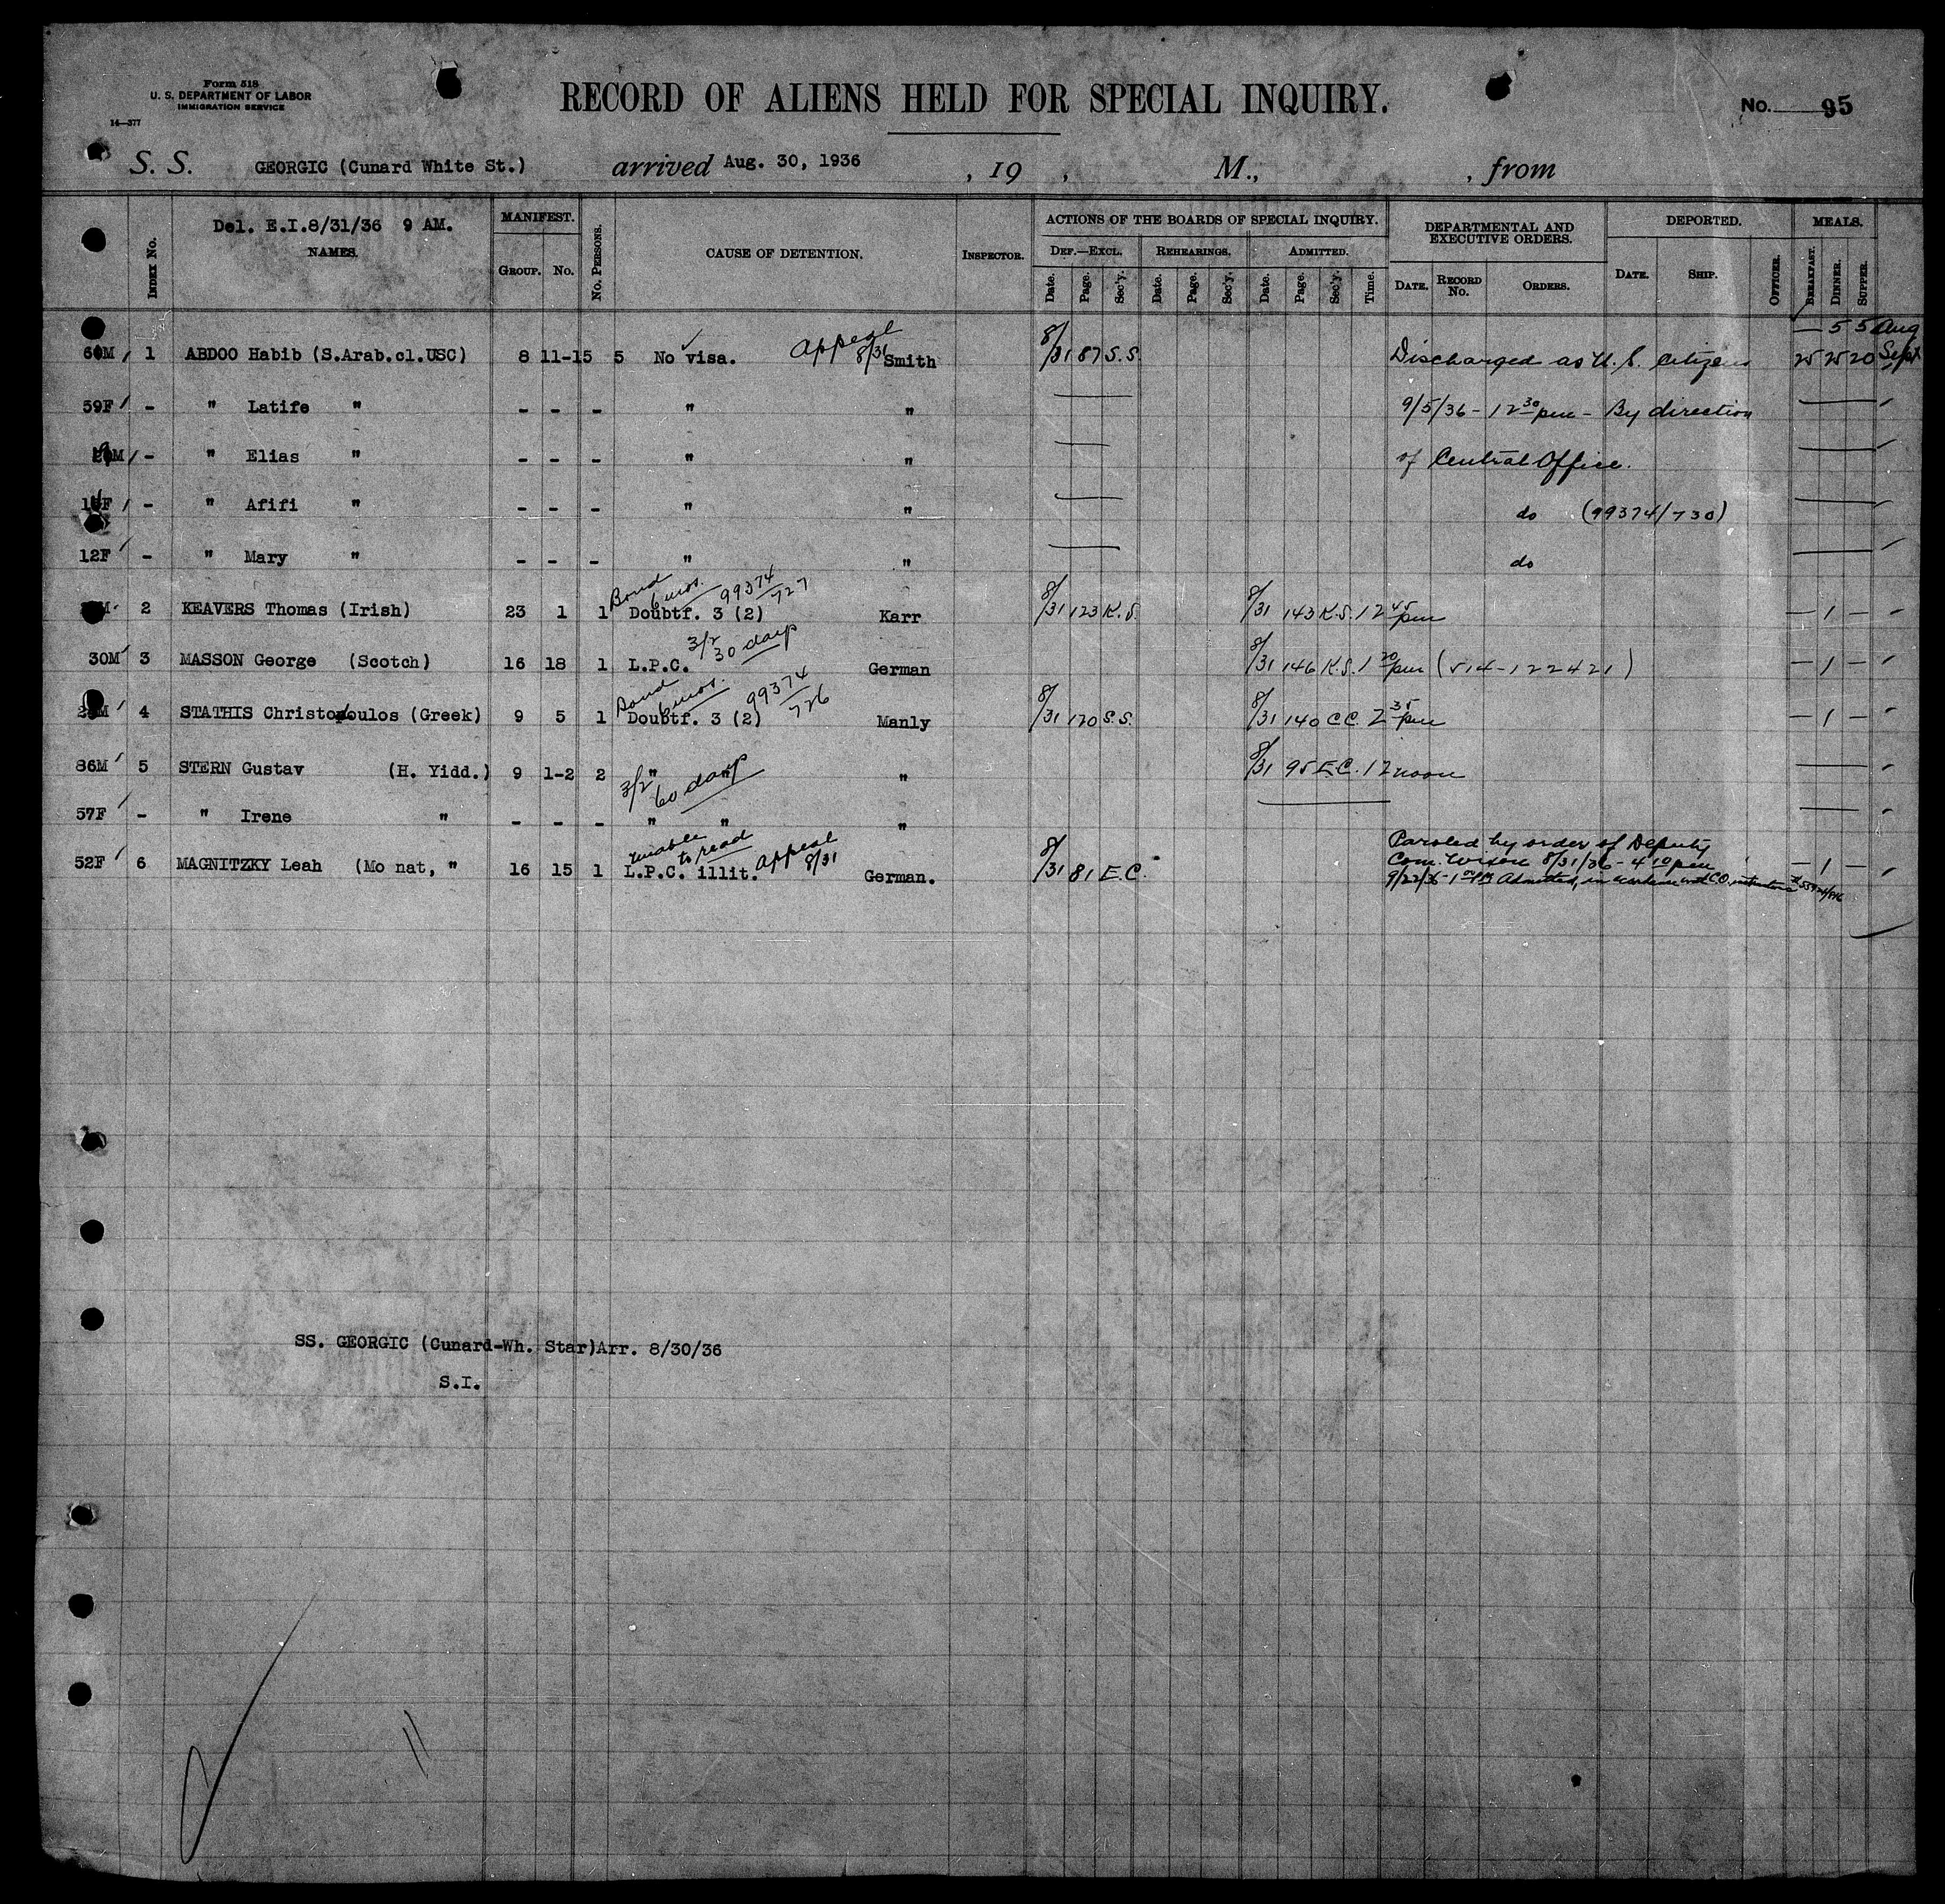 Form 518
U. S. DEPARTMENT OF LABOR
IMMIGRATION SERVICE
14—377
RECORD OF ALIENS HELD FOR SPECIAL INQUIRY.
No. 95
S. S. GEORGIC (Cunard White St.) arrived Aug. 30, 1936 , 19 , M., , from
Del. E.I.8/31/36 9 AM.
INDEX No. NAMES. MANIFEST. GROUP. No. No. PERSONS. CAUSE OF DETENTION. INSPECTOR. ACTIONS OF THE BOARDS OF SPECIAL INQUIRY. DEPARTMENTAL AND EXECUTIVE ORDERS. DEPORTED. MEALS.
DEF.—EXCL. REHEARINGS. ADMITTED.
Date. Page. Sec'y. Date. Page. Sec'y. Date. Page. Sec'y. Time. DATE. RECORD No. ORDERS. DATE. SHIP. OFFICER. BREAKFAST. DINNER. SUPPER.
— 5 5 Aug
1 ABDOO Habib (S.Arab.cl.USC) 8 11-15 5 No visa. Appeal 8/31 Smith 8/31 87 S.S. Discharged as U. S. Citizens 25 25 20 Sept
59F - " Latife " - - - " " 9/5/36 - 12 30 pm - By direction
- " Elias " - - - " " of Central Office.
- " Afifi " - - - " " do (99374/730)
12F - " Mary " - - - " " do
Bond 6 mos. 99374/727
2 KEAVERS Thomas (Irish) 23 1 1 Doubtf. 3 (2) Karr 8/31 123 K.S. 8/31 143 K.S. 12 45 pm — 1 —
3/2 30 days
30M 3 MASSON George (Scotch) 16 18 1 L.P.C. German 8/31 146 K.S. 1 20 pm (514-122421) — 1 —
Bond 6 mos. 99374/726
4 STATHIS Christopoulos (Greek) 9 5 1 Doubtf. 3 (2) Manly 8/31 120 S.S. 8/31 140 C.C. 2 35 pm — 1 —
36M 5 STERN Gustav (H. Yidd.) 9 1-2 2 " " " 8/31 95 E.C. 12 noon
3/2 60 days
57F - " Irene " - - - " " "
unable to read
52F 6 MAGNITZKY Leah (Mo nat, " 16 15 1 L.P.C. illit. Appeal 8/31 German. 8/31 81 E.C. Paroled by order of Deputy
Com. Wixon 8/31/36 - 4 10 pm — 1 —
9/22/36 - 1 Admitted, in accordance with C.O. instructions
SS. GEORGIC (Cunard-Wh. Star)Arr. 8/30/36
S.I.